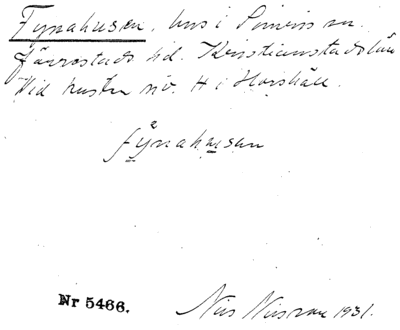 Fynahusen, hus i Simris sn.
Järrestads hd. Kristianstads län
Vid kusten nv. H i Horshall.
fẙnahusen
Nr 5466. Nils Nilsson 1931.